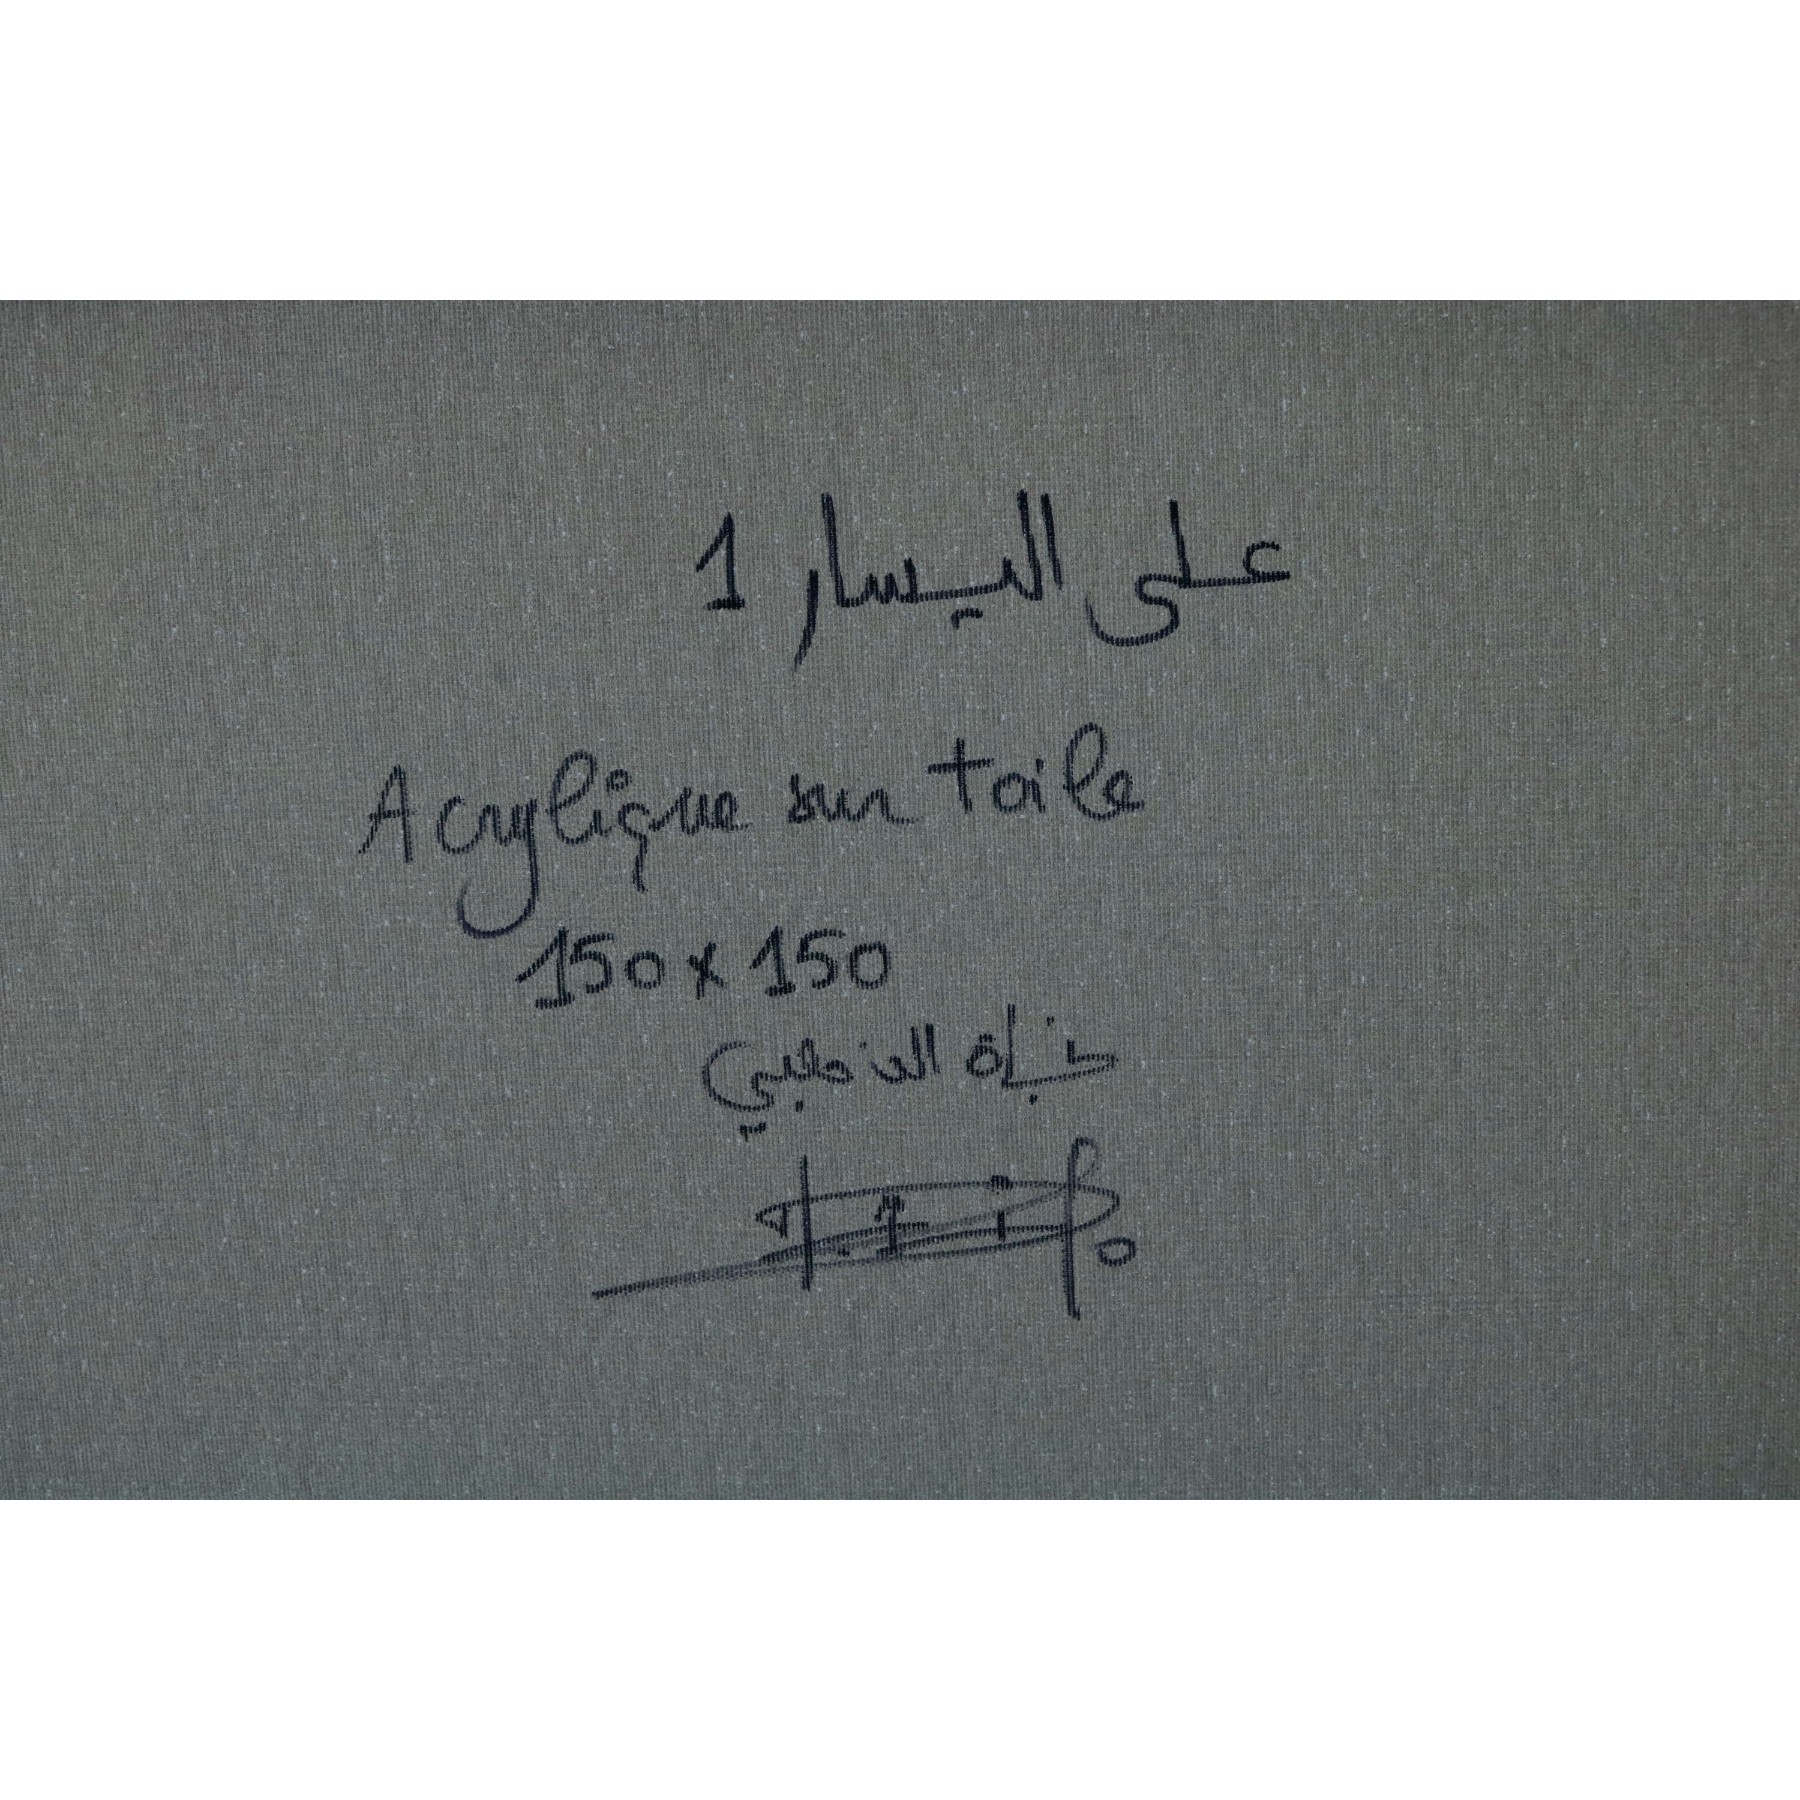 على اليسار 1
Acrylique sur toile
150 x 150
نجاة